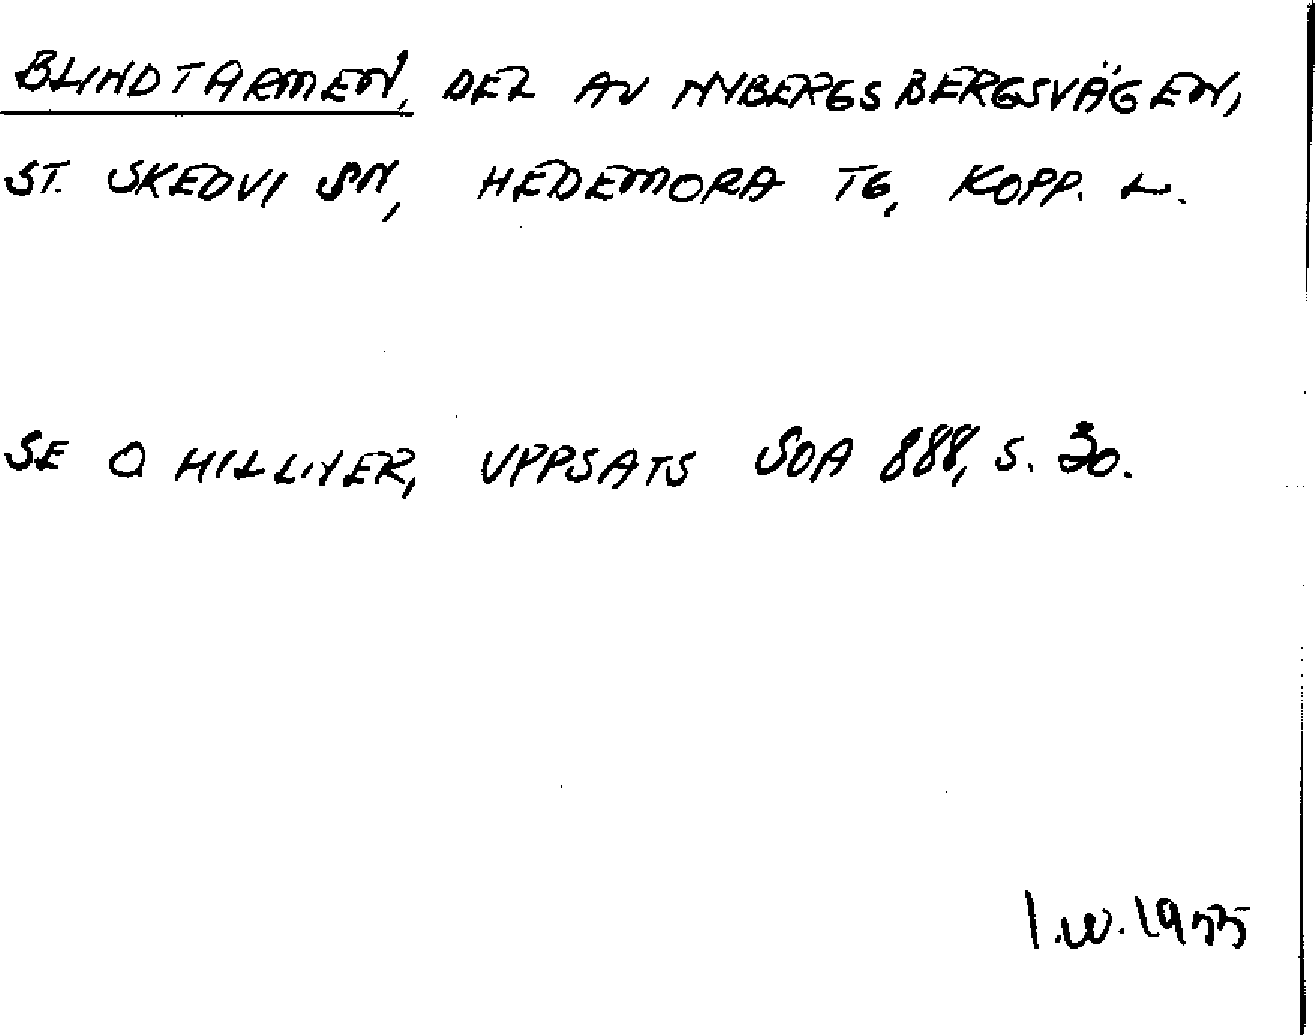 BLINDTARMEN, DEL AV NYBERGSBERGSVÄGEN,
ST. SKEDVI SN, HEDEMORA TG, KOPP. L.
SE O HILLIYER, UPPSATS SOA 888, S. 30.
I.W. 1975